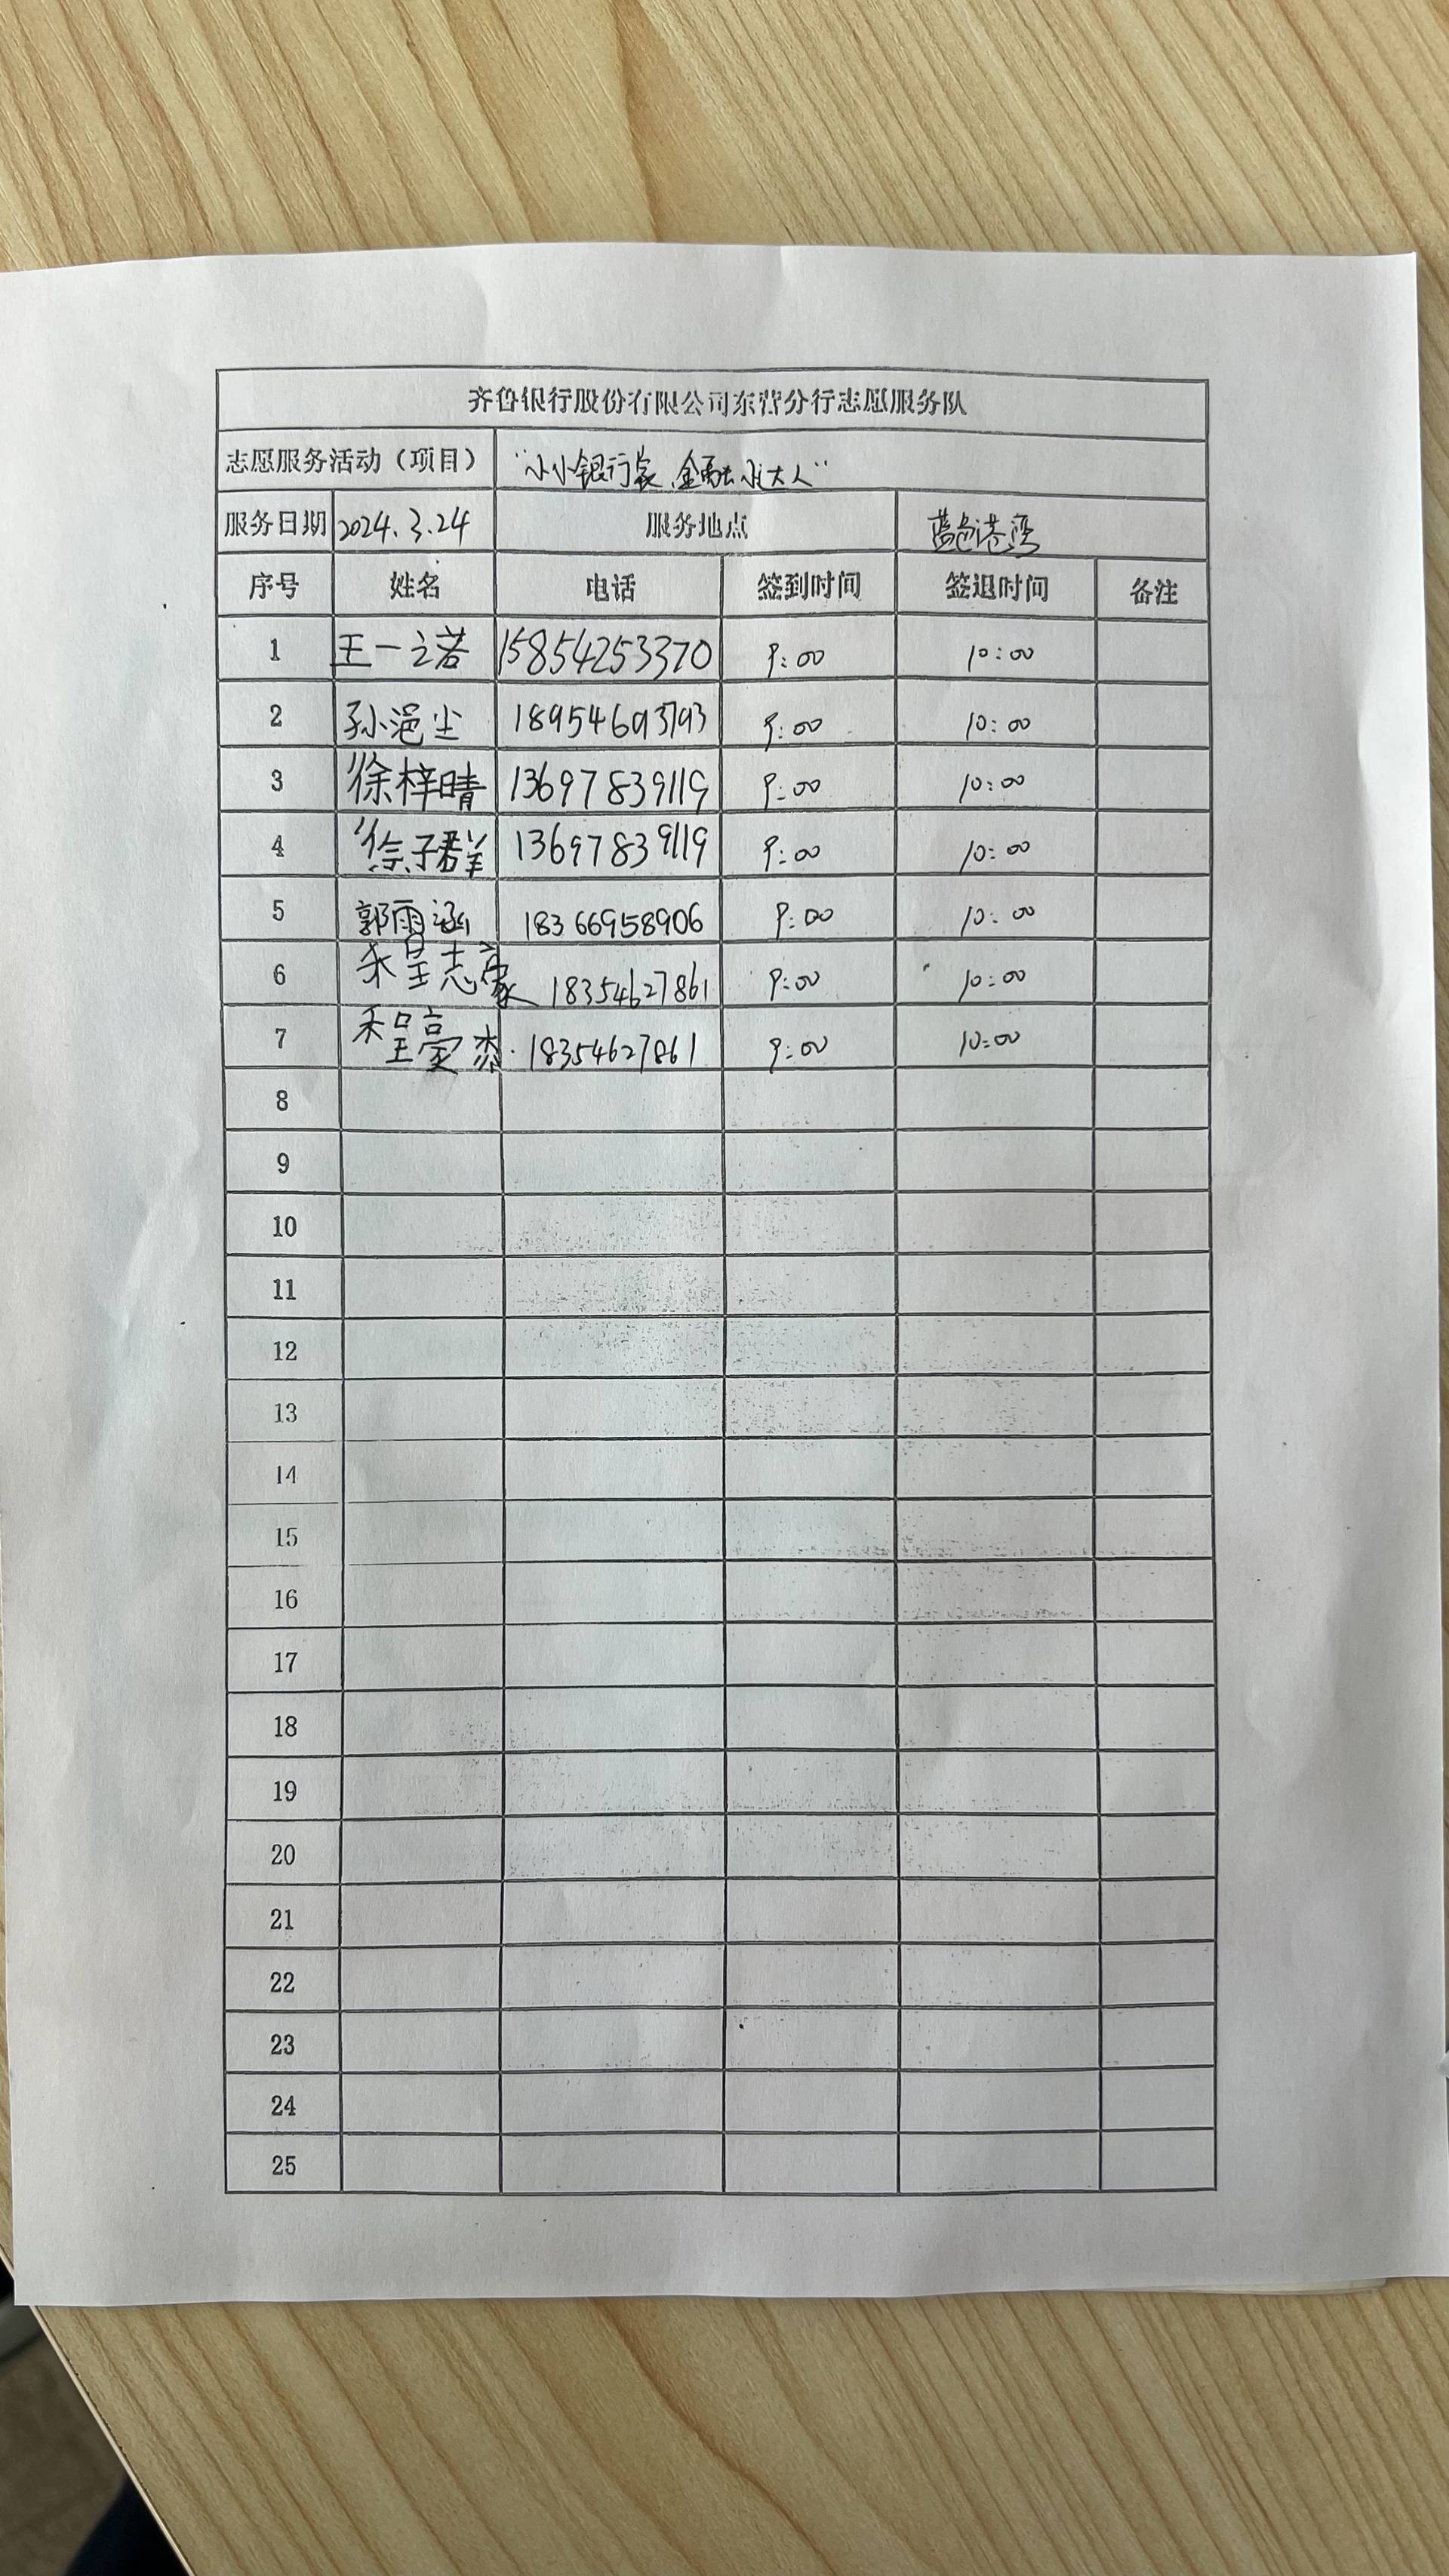 齐鲁银行股份有限公司东营分行志愿服务队
志愿服务活动（项目） “小小银行家,金融小达人”
服务日期 2024.3.24 服务地点 蓝色港湾
序号 姓名 电话 签到时间 签退时间 备注
1 王一之若 15854253370 9:00 10:00
2 孙浥尘 18954693793 9:00 10:00
3 徐梓晴 13697839119 9:00 10:00
4 徐子群 13697839119 9:00 10:00
5 郭雨涵 18366958906 9:00 10:00
6 程志豪 18354627861 9:00 10:00
7 程 18354627861 9:00 10:00
8
9
10
11
12
13
14
15
16
17
18
19
20
21
22
23
24
25